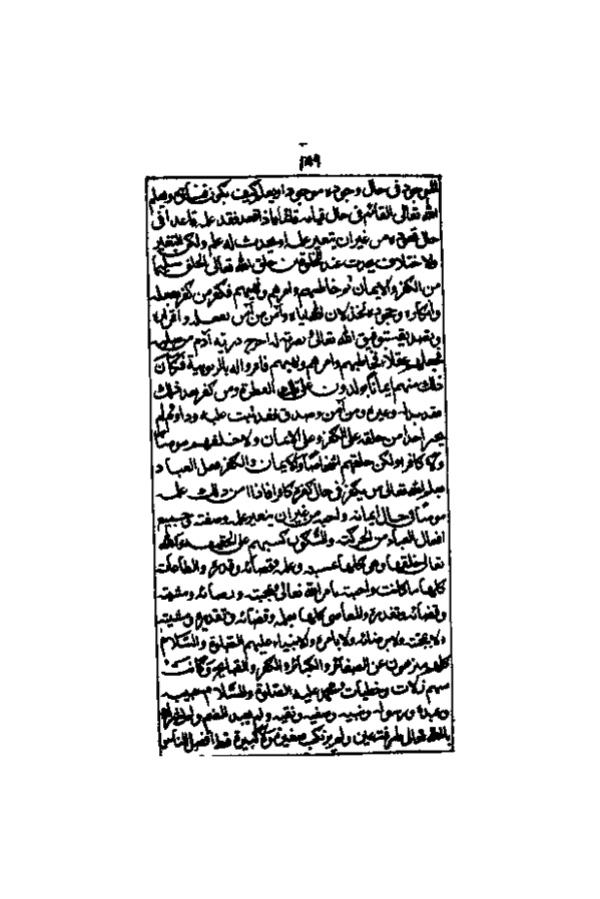 الموجود في حال وجوده موجودا ويعلم كيف يكون فناؤه ويعلم
الله تعالى القائم في حال قيامه قائما واذا قعد فقد علمه قاعدا في
حال قعوده من غير ان يتغير علمه او يحدث له علم ولكن التغير
والاختلاف يحدث عند المخلوقين خلق الله تعالى الخلق سليما
من الكفر والايمان ثم خاطبهم وامرهم ونهاهم فكفر من كفر بفعله
وانكاره وجحوده بخذلان الله اياه وآمن من آمن بفعله واقراره
وتصديقه بتوفيق الله تعالى ونصرته له اخرج ذرية آدم من صلبه
فجعلهم عقلاء فخاطبهم وامرهم ونهاهم فاقروا له بالربوبية فكان
ذلك منهم ايمانا يولدون على تلك الفطرة ومن كفر بعد ذلك
فقد بدل وغير ومن آمن وصدق فقد ثبت عليه وداوم ولم
يجبر احدا من خلقه على الكفر وعلى الايمان ولا خلقهم مومنا
ولا كافرا ولكن خلقهم اشخاصا والايمان والكفر فعل العباد
يعلم الله تعالى من يكفر في حال كفره كافرا فاذا امن بعد ذلك علمه
مومنا في حال ايمانه واحبه من غير ان يتغير علمه وصفته وجميع
افعال العباد من الحركة والسكون كسبهم على الحقيقة والله
تعالى خلقها وهي كلها بمشيته وعلمه وقضائه وقدره والطاعات
كلها ما كانت واجبة بامر الله تعالى وبمحبته وبرضائه ومشيته
وقضائه وتقديره والمعاصي كلها بعلمه وقضائه وتقديره ومشيته
ولا بمحبته ولا برضائه ولا بامره والانبياء عليهم الصلوة والسلام
كلهم منزهون عن الصغائر والكبائر والكفر والقبائح وكانت
منهم زلات وخطيات ومحمد عليه الصلوة والسلام حبيبه
وعبده ورسوله ونبيه وصفيه ونقيه ولم يعبد الصنم ولم يشرك
بالله تعالى طرفة عين ولم يرتكب صغيرة ولا كبيرة قط افضل الناس